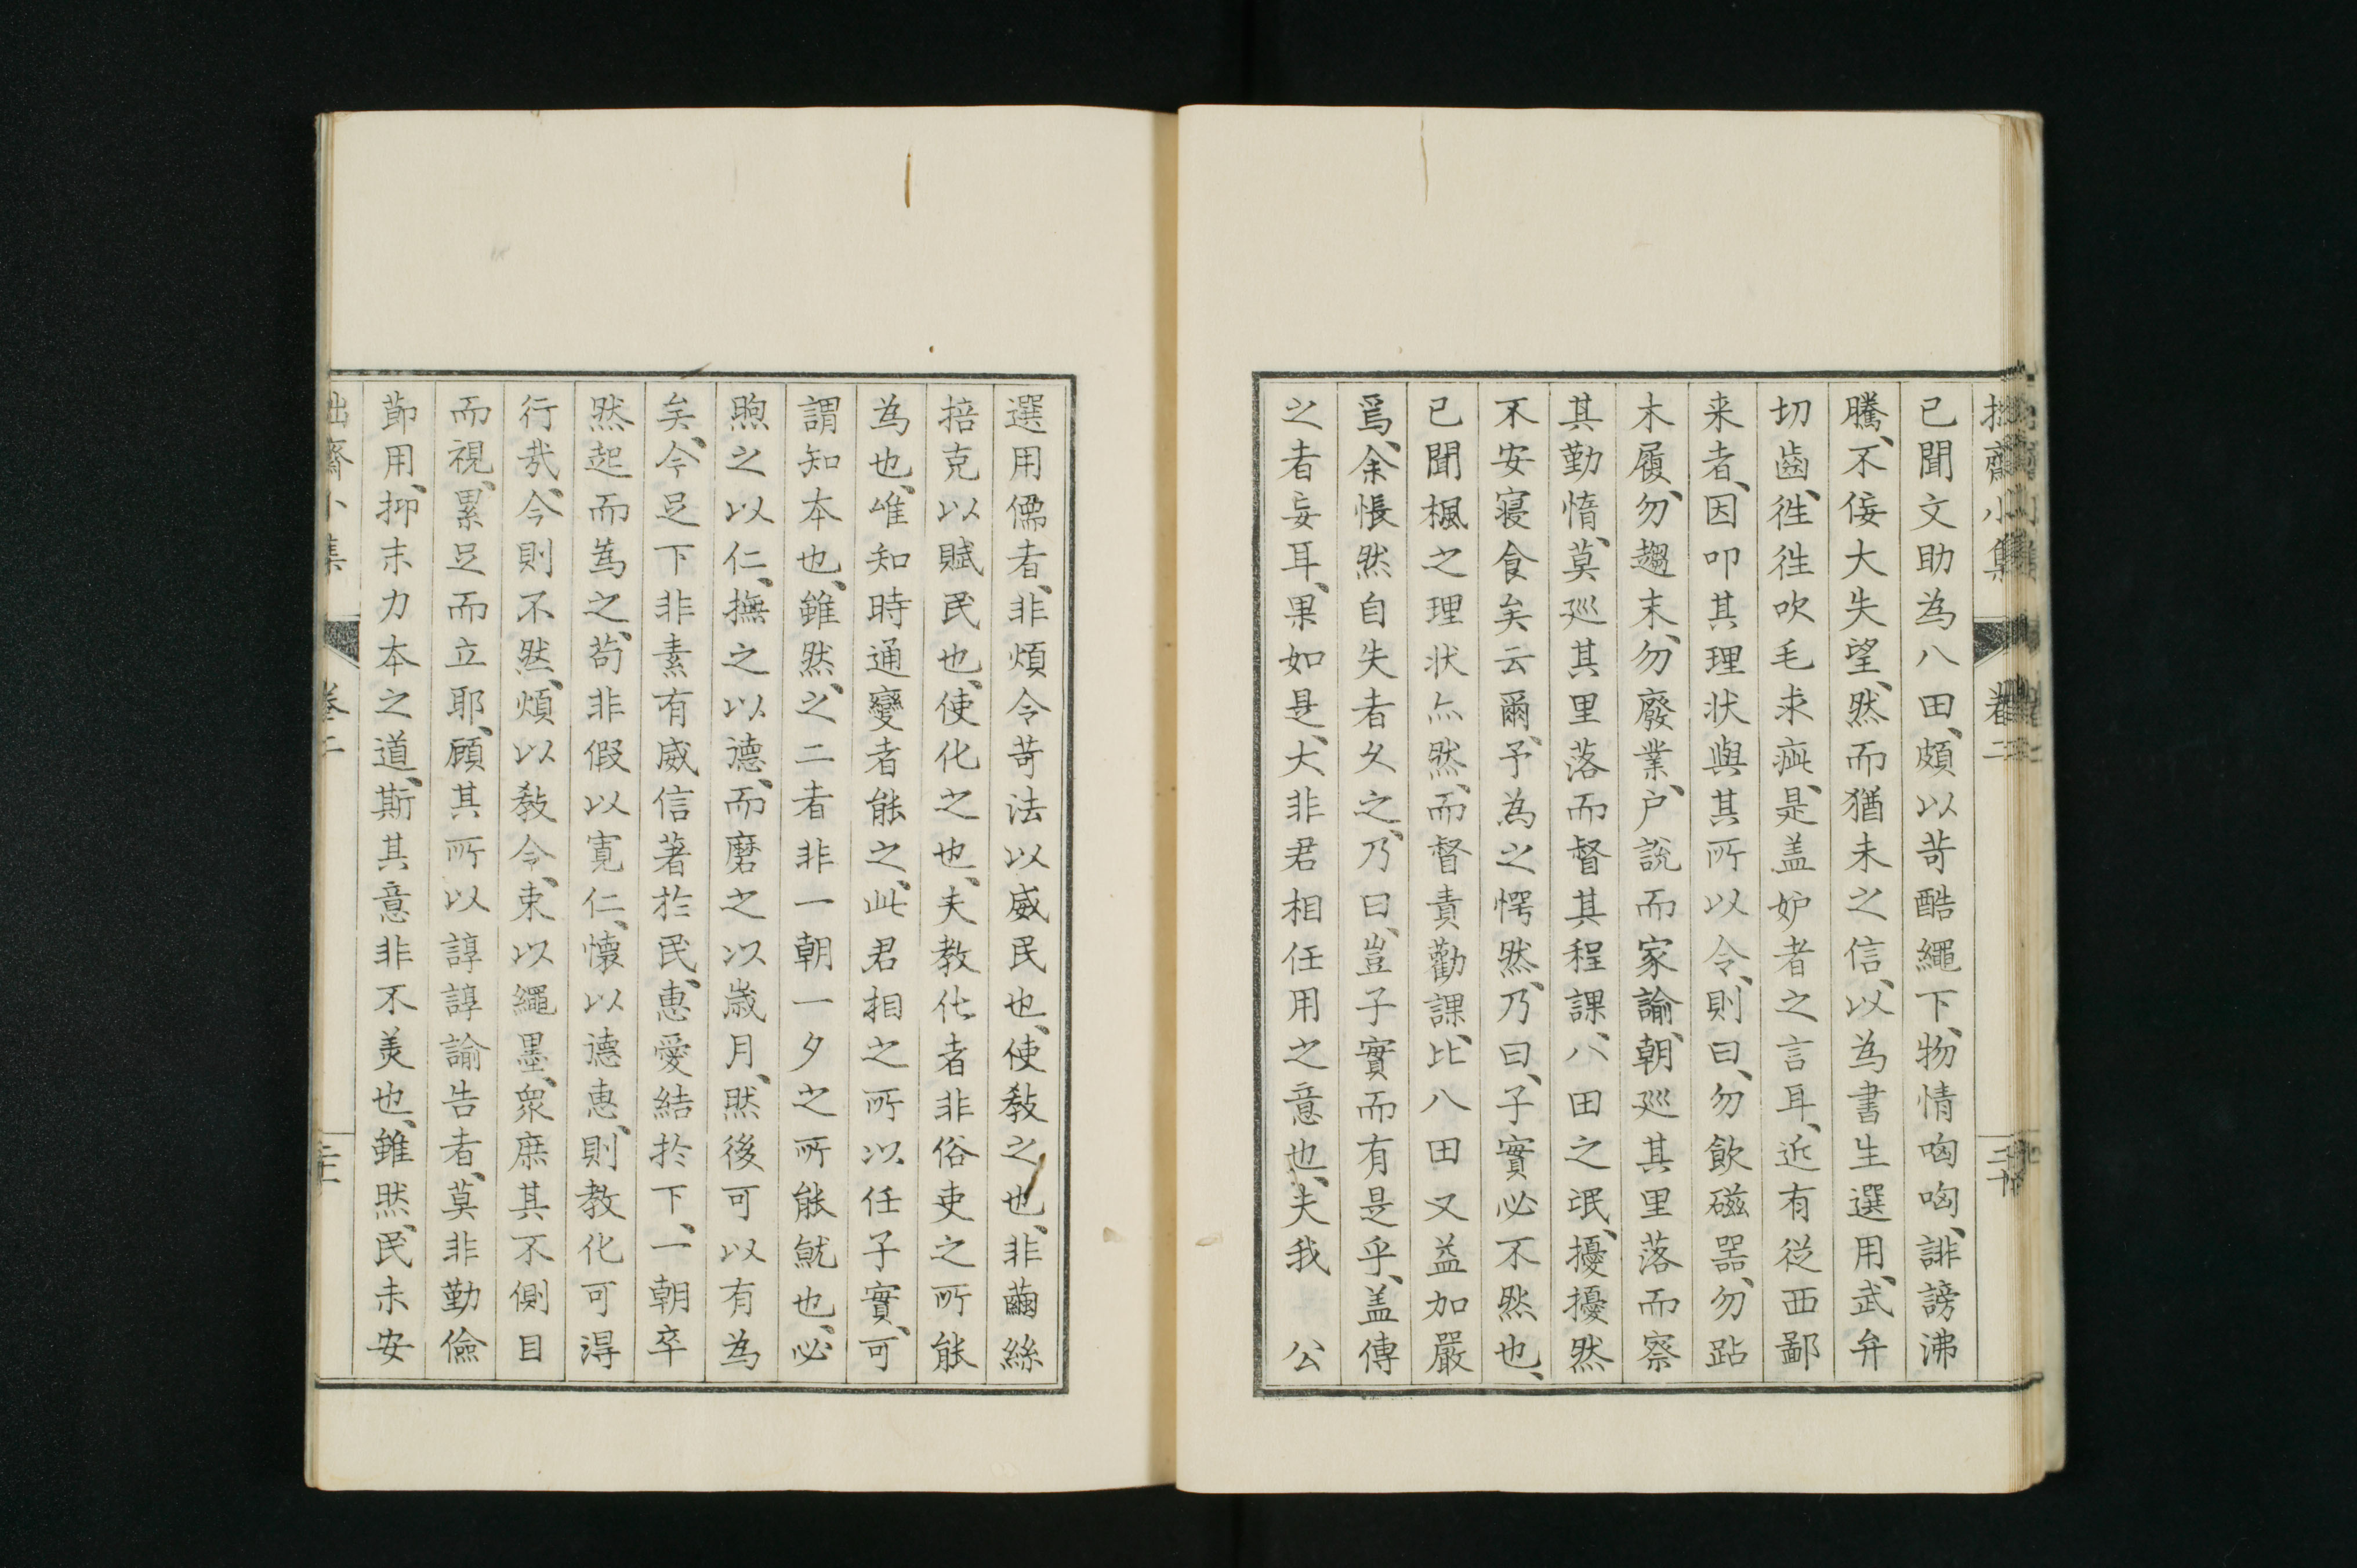 拙齋小集 卷二 三十
已聞文助為八田、頗以苛酷繩下、物情啕啕、誹謗沸
騰、不佞大失望、然而猶未之信、以為書生選用、武弁
切齒、徃徃吹毛求疵、是盖妒者之言耳、近有從西鄙
来者、因叩其理状與其所以令、則曰、勿飲磁器、勿跕
木履、勿趨末、勿廢業、户說而家諭、朝巡其里落而察
其勤惰、莫巡其里落而督其程課、八田之氓、擾擾然
不安寢食矣云爾、予為之愕然、乃曰、子實必不然也、
已聞楓之理状亦然、而督責勸課、比八田又益加嚴
焉、余悵然自失者久之、乃曰、豈子實而有是乎、盖傳
之者妄耳、果如是、大非君相任用之意也、夫我 公
選用儒者、非煩令苛法以威民也、使敎之也、非繭絲
掊克以賦民也、使化之也、夫教化者非俗吏之所能
為也、唯知時通變者能之、此君相之所以任子實、可
謂知本也、雖然、之二者非一朝一夕之所能就也、必
煦之以仁、撫之以德、而磨之以歲月、然後可以有為
矣、今足下非素有威信著於民、惠愛結於下、一朝卒
然起而為之、茍非假以寬仁、懷以德惠、則教化可淂
行哉、今則不然、煩以敎令、束以繩墨、衆庶其不側目
而視、累足而立耶、顧其所以諄諄諭告者、莫非勤儉
節用、抑末力本之道、斯其意非不美也、雖然、民未安
拙齋小集 卷二